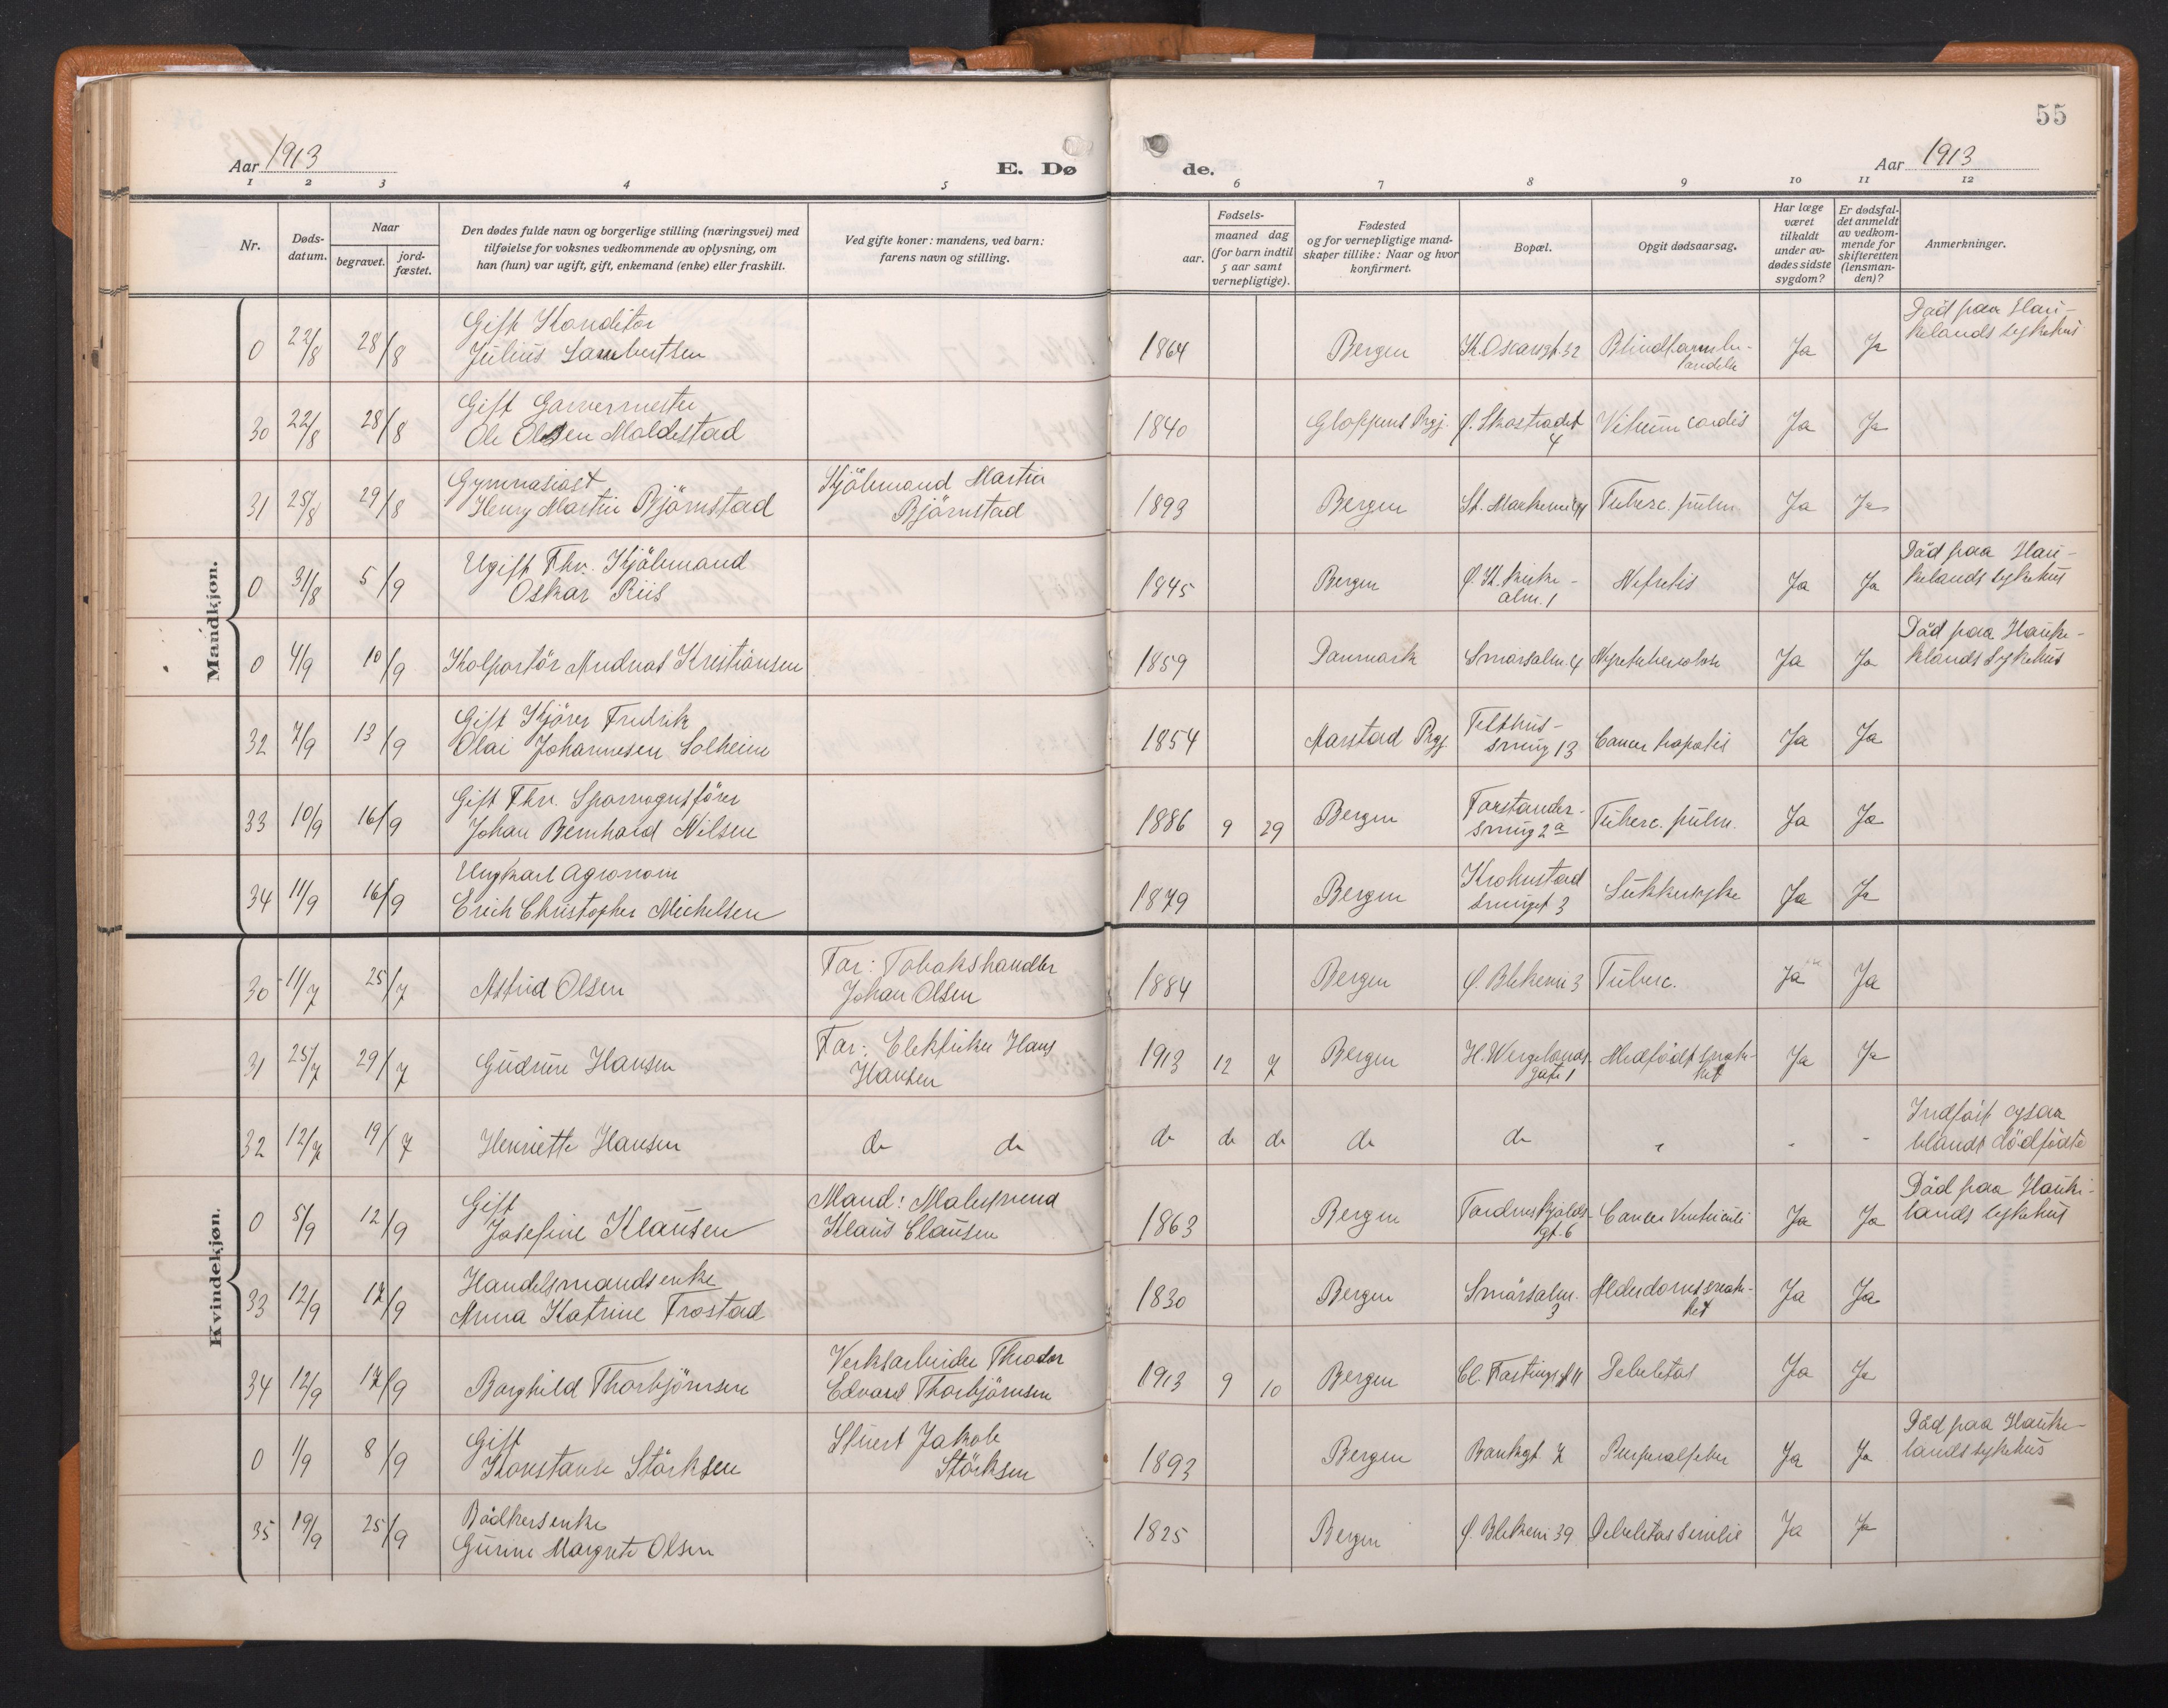 55
Aar 1913
E. Dø
de.
Aar 1913
1 2 3 4 5 6 7 8 9 10 11 12
Nr.
Døds-
datum.
Naar
begravet.
jord-
fæstet.
Den dødes fulde navn og borgerlige stilling (næringsvei) med
tilføielse for voksnes vedkommende av oplysning, om
han (hun) var ugift, gift, enkemand (enke) eller fraskilt.
Ved gifte koner: mandens, ved barn:
farens navn og stilling.
Fødsels-
aar.
maaned dag
(for barn indtil
5 aar samt
vernepligtige).
Fødested
og for vernepligtige mand-
skaper tillike: Naar og hvor
konfirmert.
Bopæl.
Opgit dødsaarsag.
Har læge
været
tilkaldt
under av-
dødes sidste
sygdom?
Er dødsfal-
det anmeldt
av vedkom-
mende for
skifteretten
(lensman-
den)?
Anmerkninger.
Mandkjøn.
0 22/8 28/8 Gift Konditor
Julius Lambertsen
1864 Bergen K. Oscarsgt. 52 Ja Ja
Død paa Hau-
kelands sykehus
30 22/8 28/8 Gift Garvermester
Ole Olsen Moldestad
1840 Gloppens Prgj. Ø. Skostrædet
4
Vitium cordis Ja Ja
31 25/8 29/8 Gymnasiast
Henry Martin Bjørnstad
Kjøbmand Martin
Bjørnstad
1893 Bergen Tuberc. pulm Ja Ja
0 31/8 5/9 Ugift Fhv. Kjøbmand
Oskar Riis
1845 Bergen Ø. K. kirke-
alm. 1
Nefritis Ja Ja
Død paa Hau-
kelands sykehus
0 4/9 10/9 Kolportør Andreas Kristiansen
1859 Danmark Smørsalm. 4 Nyretuberculose Ja Ja
Død paa Hauke-
lands sykehus
32 7/9 13/9 Gift Kjører Fredrik
Olai Johannesen Solheim
1854 Aarstad Prgj. Telthus-
smug 13
Cancer hepatis Ja Ja
33 10/9 16/9 Gift Fhv. Sporvognsfører
Johan Bernhard Nilsen
1886 9 29 Bergen Forstander-
smug 2a
Tuberc. pulm. Ja Ja
34 11/9 16/9 Ungkarl Agronom
Erich Christopher Michelsen
1879 Bergen Krohnstad
smuget 3
Sukkersyke Ja Ja
Kvindekjøn.
30 11/7 25/7 Astrid Olsen
Far: Tobakshandler
Johan Olsen
1884 Bergen Ø. Blekevei 3 Tuberc. Ja Ja
31 25/7 29/7 Gudrun Hansen
Far: Elektriker Hans
Hansen
1913 12 7 Bergen H. Wergelands
gate 1
Medfødt svak-
het
Ja Ja
32 12/7 19/7 Henriette Hansen
do do do do do do do - - -
Indført ogsaa
blandt dødfødte
0 5/9 12/9 Gift
Josefine Klausen
Mand: Malersvend
Klaus Clausen
1863 Bergen Tordenskjolds-
gt. 6
Cancer Ventriculi Ja Ja
Død paa Hauke-
lands sykehus
33 12/9 17/9 Handelsmandsenke
Anna Katrine Frostad
1830 Bergen Smørsalm.
3
Alderdomssvak-
het
Ja Ja
34 12/9 17/9 Borghild Thorbjørnsen
Verksarbeider Theodor
Edvard Thorbjørnsen
1913 9 10 Bergen Cl. Fastingsgt 11 Debilitas Ja Ja
0 1/9 8/9 Gift
Konstanse Størksen
Stuert Jakob
Størksen
1893 Bergen Bankgt. 7 Puerperalfeber Ja Ja
Død paa Hauke-
lands sykehus
35 19/9 25/9 Bødkersenke
Gunne Margrete Olsen
1825 Bergen Ø. Blekevei 39 Debilitas senilis Ja Ja